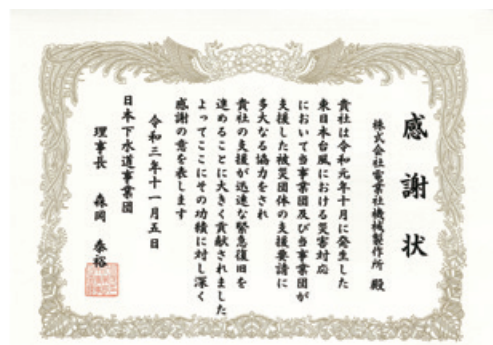 感謝状
株式会社電業社機械製作所 殿
貴社は令和元年十月に発生した
東日本台風における災害対応
において当事業団及び当事業団が
支援した被災団体の支援要請に
多大なる協力をされ
貴社の支援が迅速な緊急復旧を
進めることに大きく貢献されました
よってここにその功績に対し深く
感謝の意を表します
令和三年十一月五日
日本下水道事業団
理事長 森岡 泰裕